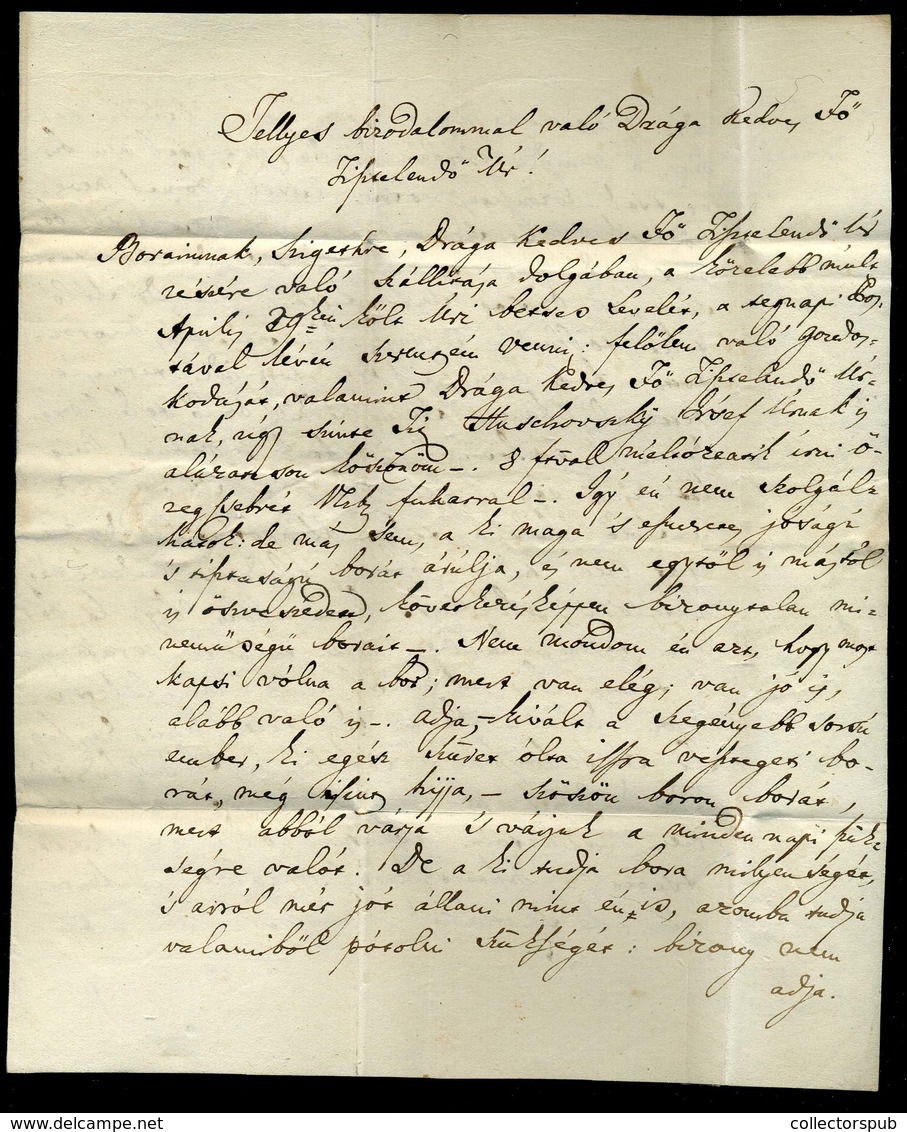 Tellyes bizodalommal való Drága Kedves Fő
Tisztelendő Úr!
Boraimnak, Szigethre, Drága Kedves Fő Tisztelendő Úr
részére való szállitása dolgában, a közelebb mult
Aprilis 29kén költ Úri betses Levelét, a tegnapi Pos-
tával lévén szerentsém venni: felőlem való gondos-
kodását, valamint Drága Kedves Fő Tisztelendő Úr-
nak, úgy szinte Huschovszky Jósef Úrnak is
alázatosson köszönöm –. 8 ftval méltóztatik írni ö-
regssebrét fuharral –. Így én nem szolgál-
hatok: de más sem, a ki maga 's esmeretes joságú
's tisztaságú borát árúlja, és nem egytöl is mástol
is öszve szedett, következésképpen bizonytalan mi-
neműségű borait –. Nem mondom én azt, hogy most
kapsi vólna a bor; mert van elég; van jó is,
alább való is –. adja, – kivált a szegényebb sorsú
ember, ki egész Szüret ólta issza vesztegeti bo-
rát, még híjja, – borát,
mert abból várja 's várjuk a minden napi szük-
ségre valót. De a ki tudja bora milyenségét,
's arról mér jót állani mint én is, azomba tudja
valamiből pótolni szükségét: bizony nem
adja.
collectorspub